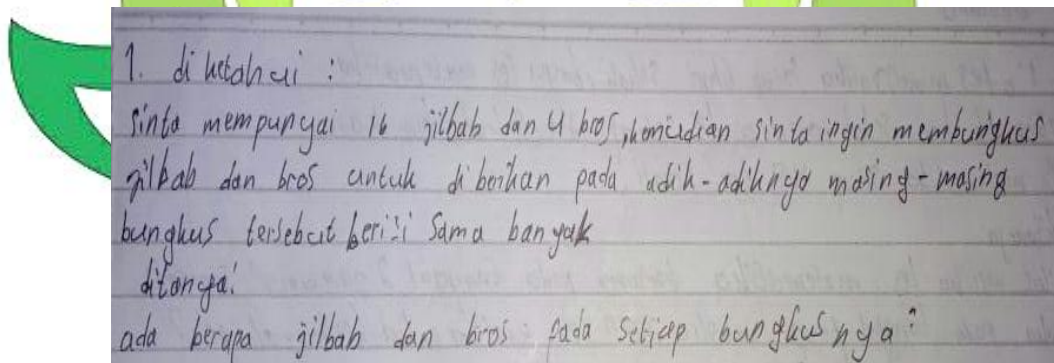 1. diketahui :
Sinta mempunyai 16 jilbab dan 4 bros, kemudian sinta ingin membungkus
jilbab dan bros untuk diberikan pada adik-adiknya masing-masing
bungkus tersebut berisi sama banyak
ditanya:
ada berapa jilbab dan bros pada setiap bungkusnya?